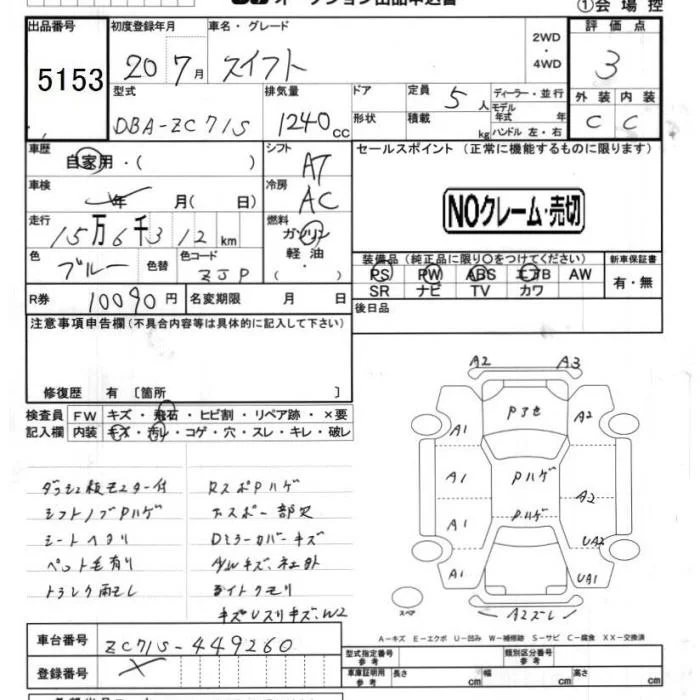 オークション出品申込書
①会場控
出品番号 初度登録年月 車名・グレード 2WD ・ 4WD 評価点
5153 20 7月 スイフト 3
型式 排気量 ドア 定員 5人 ディーラー・並行 外装 内装
DBA-ZC71S 1240cc 形状 積載 kg モデル年式 年 ハンドル 左・右 C C
車歴 自家用・( ) シフト AT セールスポイント (正常に機能するものに限ります)
車検 年 月( 日) 冷房 AC
NOクレーム・売切
走行 15万6千312km 燃料 ガソリン 軽油 ・ ( )
色 ブルー 色替 色コード ZJP
装備品 (純正品に限り○をつけてください) 新車保証書
PS PW ABS エアB AW 有・無
SR ナビ TV カワ
R券 10090円 名変期限 月 日 後日品
注意事項申告欄(不具合内容等は具体的に記入して下さい)
修復歴 有 〔箇所 〕
検査員 FW キズ・飛石・ヒビ割・リペア跡・×要
記入欄 内装 キズ・汚れ・コゲ・穴・スレ・キレ・破レ
ダッシュ板モニター付 RスポPハゲ
シフトノブPハゲ
シートヘタリ Dミラーカバーキズ
ペット毛有り
ライトクモリ
A2 A3
A1 Pアセ A2
A1 Pハゲ
A1 Pハゲ A2
UA2
A1 UA1
スペア A2ズレ
A-キズ E-エクボ U-凹み W-補修跡 S-サビ C-腐食 XX-交換済
車台番号 ZC71S-449260
登録番号
型式指定番号 参考 類別区分番号 参考
車庫証明用 参考 長さ cm 幅 cm 高さ cm